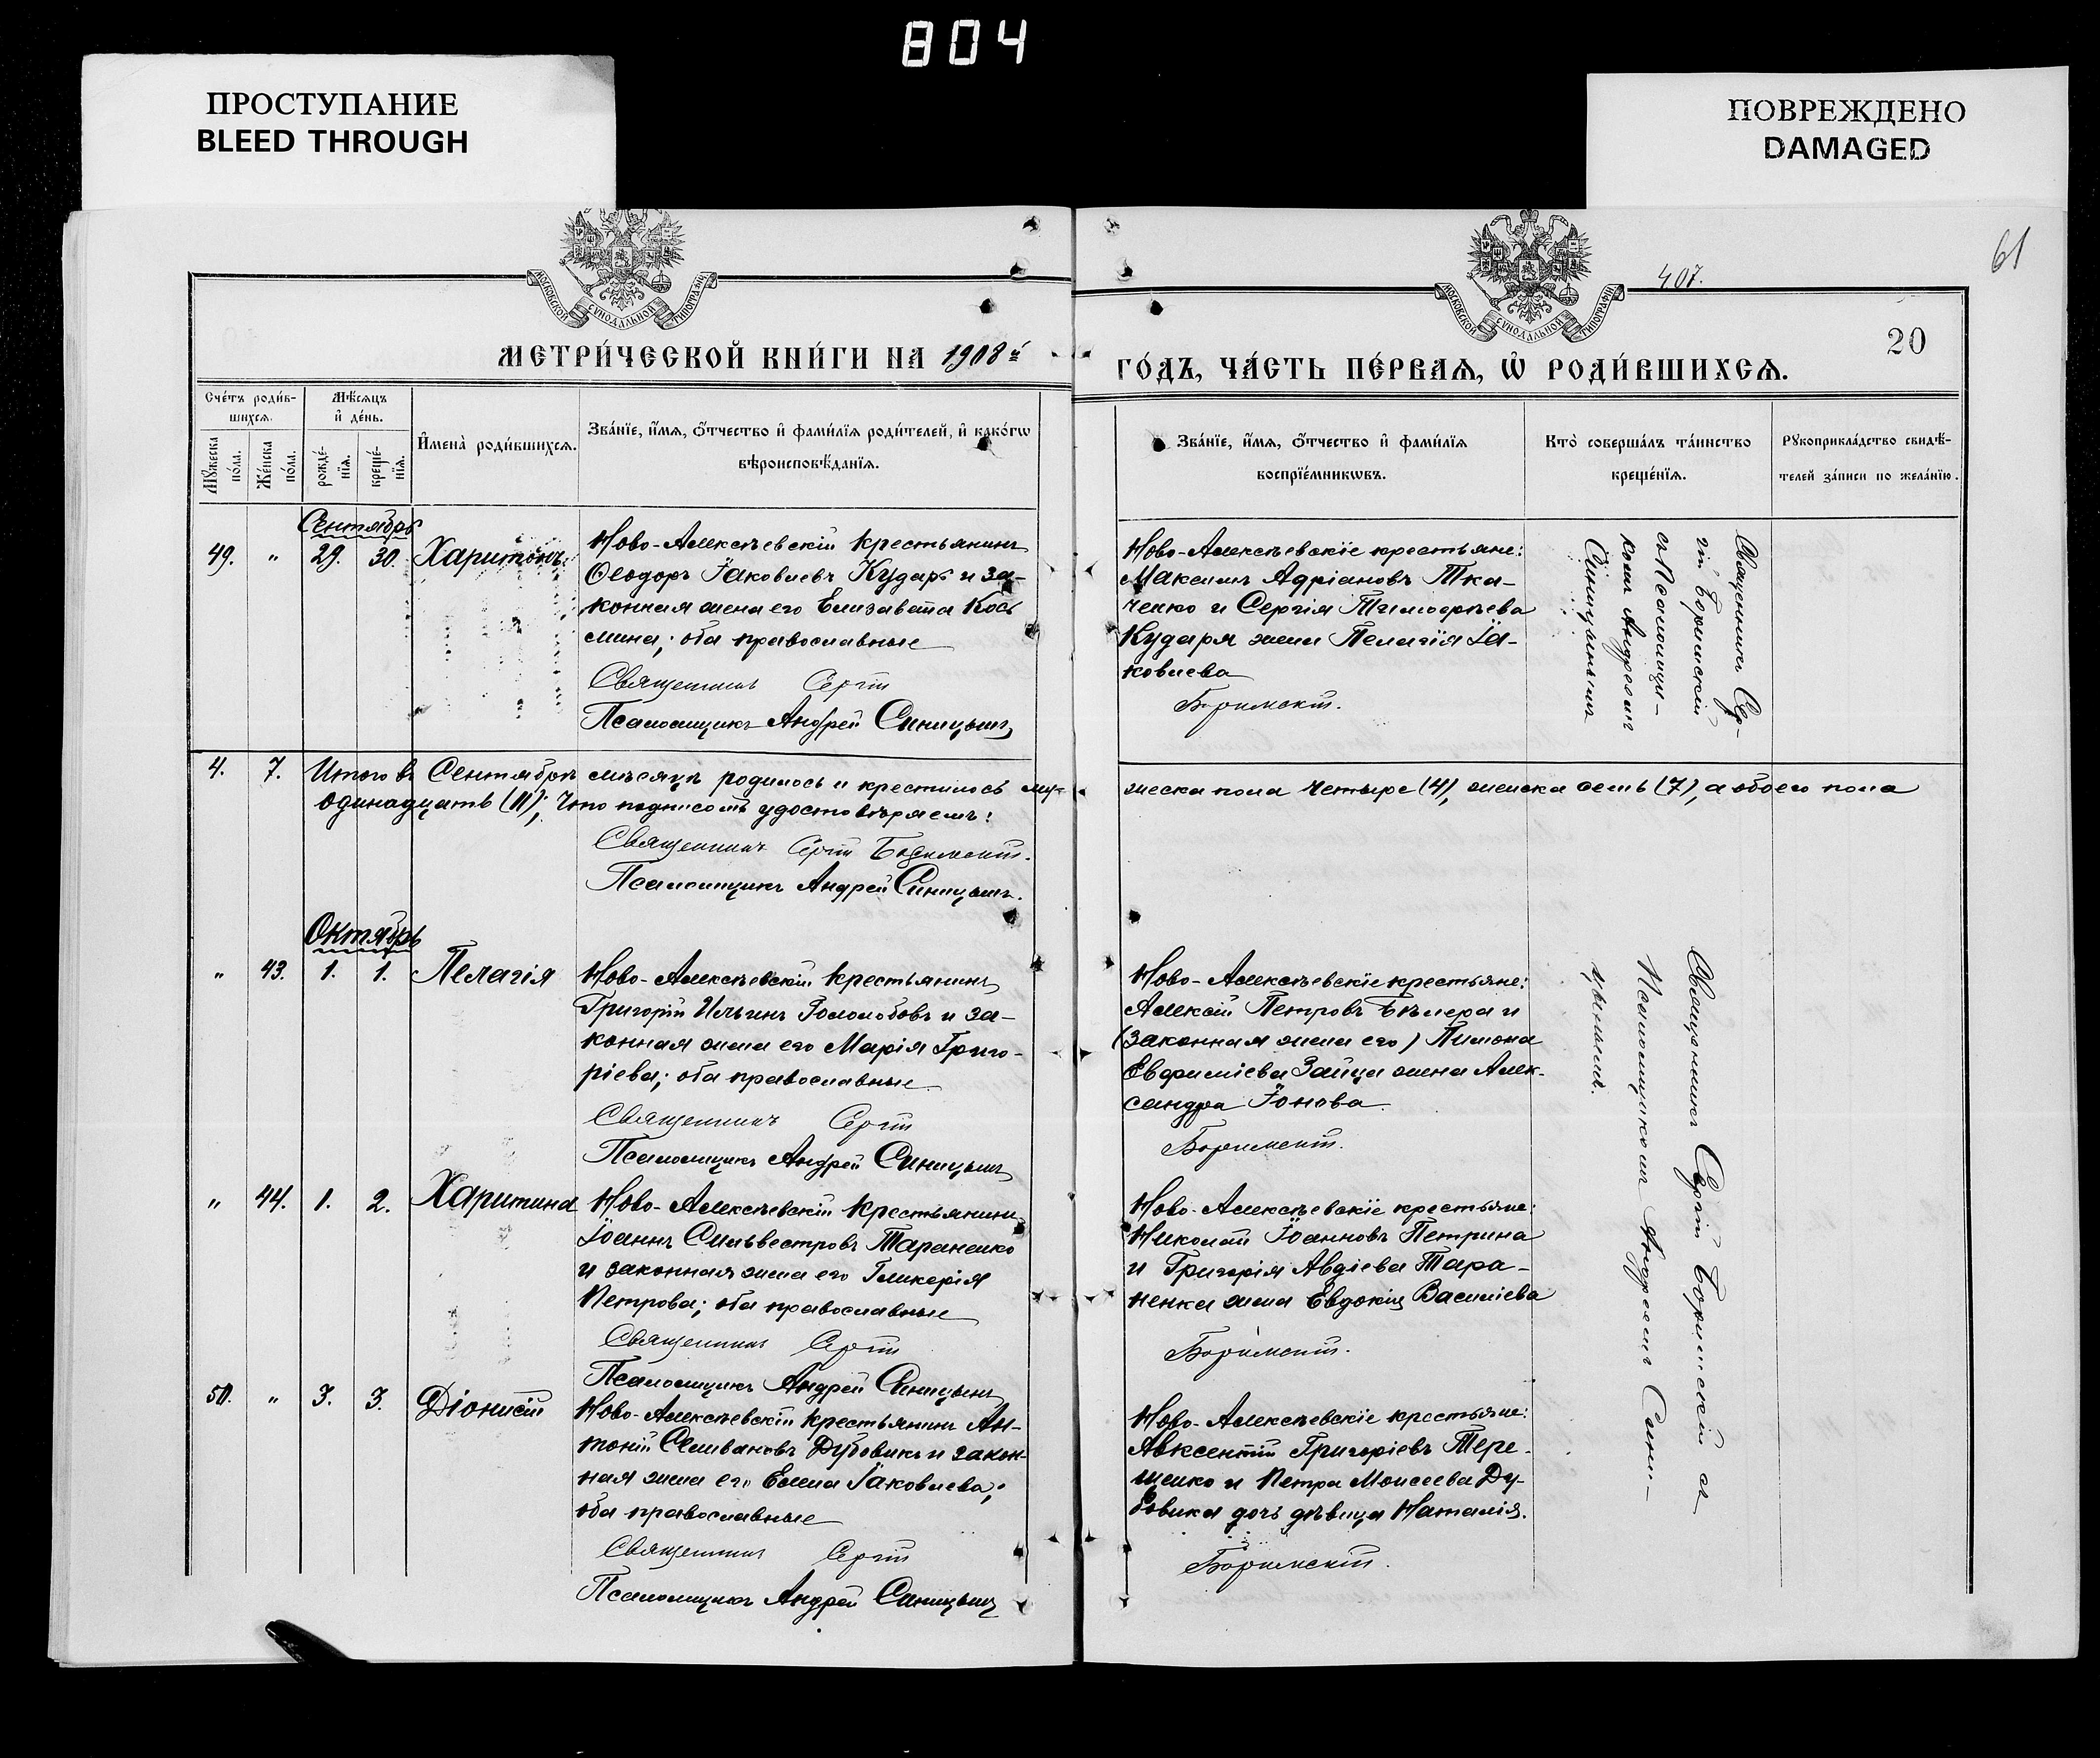 804
ПРОСТУПАНИЕ
BLEED THROUGH
ПОВРЕЖДЕНО
DAMAGED
61
407.
20
МОСКОВСКОЙ СѴНОДАЛЬНОЙ ТИПОГРАФІИ
МОСКОВСКОЙ СѴНОДАЛЬНОЙ ТИПОГРАФІИ
МЕТРИ́ЧЕСКОЙ КНИ́ГИ НА 1908й
ГО́ДЪ, ЧА́СТЬ ПЕ́РВАѦ, Ѡ҆ РОДИ́ВШИХСѦ.
Сче́тъ роди́в-
шихсѧ.
Мѣ́сѧцъ
и҆ де́нь.
Мꙋ́жеска по́ла.
Же́нска по́ла.
рожде́-нїѧ.
креще́-нїѧ.
И҆мена̀ роди́вшихсѧ.
Зва́нїе, и҆́мѧ, ѻ҆́тчество и҆ фами́лїѧ роди́телей, и҆ како́гѡ
вѣроисповѣ́данїѧ.
Зва́нїе, и҆́мѧ, ѻ҆́тчество и҆ фами́лїѧ
воспрїе́мникѡвъ.
Кто̀ соверша́лъ та́инство
креще́нїѧ.
Рꙋкоприкла́дство свидѣ́-
телей за́писи по жела́нїю.
Сентябрь
49. " 29. 30. Харитонъ.
Ново-Алексѣевскій крестьянинъ
Ѳеодоръ Іаковлевъ Кударь и за-
конная жена его Елизавета Кось
мина; оба православные
Священникъ Сергій
Псаломщикъ Андрей Синицынъ
Ново-Алексѣевскіе крестьяне:
Максимъ Адріановъ Тка-
ченко и Сергія Тимоѳеева
Кударя жена Пелагія Іа-
ковлева
Боримскій.
Священникъ Сер-
гій Боримскій
съ Псаломщи-
комъ Андреемъ
Синицынымъ
4. 7. Итого въ Сентябрѣ мѣсяцѣ родилось и крестилось му- жеска пола четыре (4), женска семь (7), а обоего пола
одинадцать (11); что подписомъ удостовѣряемъ:
Священникъ Сергій Боримскій.
Псаломщикъ Андрей Синицынъ.
Октябрь
" 43. 1. 1. Пелагія
Ново-Алексѣевскій крестьянинъ
Григорій Ильинъ Гололобовъ и за-
конная жена его Марія Григо-
ріева; оба православные
Священникъ Сергій
Псаломщикъ Андрей Синицынъ
Ново-Алексѣевскіе крестьяне:
Алексій Петровъ и
(законная жена его) Пимона
Евфиміева Зайца жена Алек-
сандра Іонова.
Боримскій.
Священникъ Сергій Боримскій съ
Псаломщикомъ Андреемъ Сини-
цынымъ.
" 44. 1. 2. Харитина
Ново-Алексѣевскій крестьянинъ
Іоаннъ Сильвестровъ Тараненко
и законная жена его Гликерія
Петрова; оба православные
Священникъ Сергій
Псаломщикъ Андрей Синицынъ
Ново-Алексѣевскіе крестьяне:
Николай Іоанновъ Петрина
и Григорія Авдіева Тара-
ненка жена Евдокія Василіева
Боримскій.
50. " 3. 3. Діонисій
Ново-Алексѣевскій крестьянинъ Ан-
тоній Селивановъ Дубовикъ и закон-
ная жена его Елена Іаковлева;
оба православные
Священникъ Сергій
Псаломщикъ Андрей Синицынъ
Ново-Алексѣевскіе крестьяне:
Авксентій Григоріевъ Тере-
щенко и Петра Моисеева Ду-
бовика дочь дѣвица Наталія.
Боримскій.